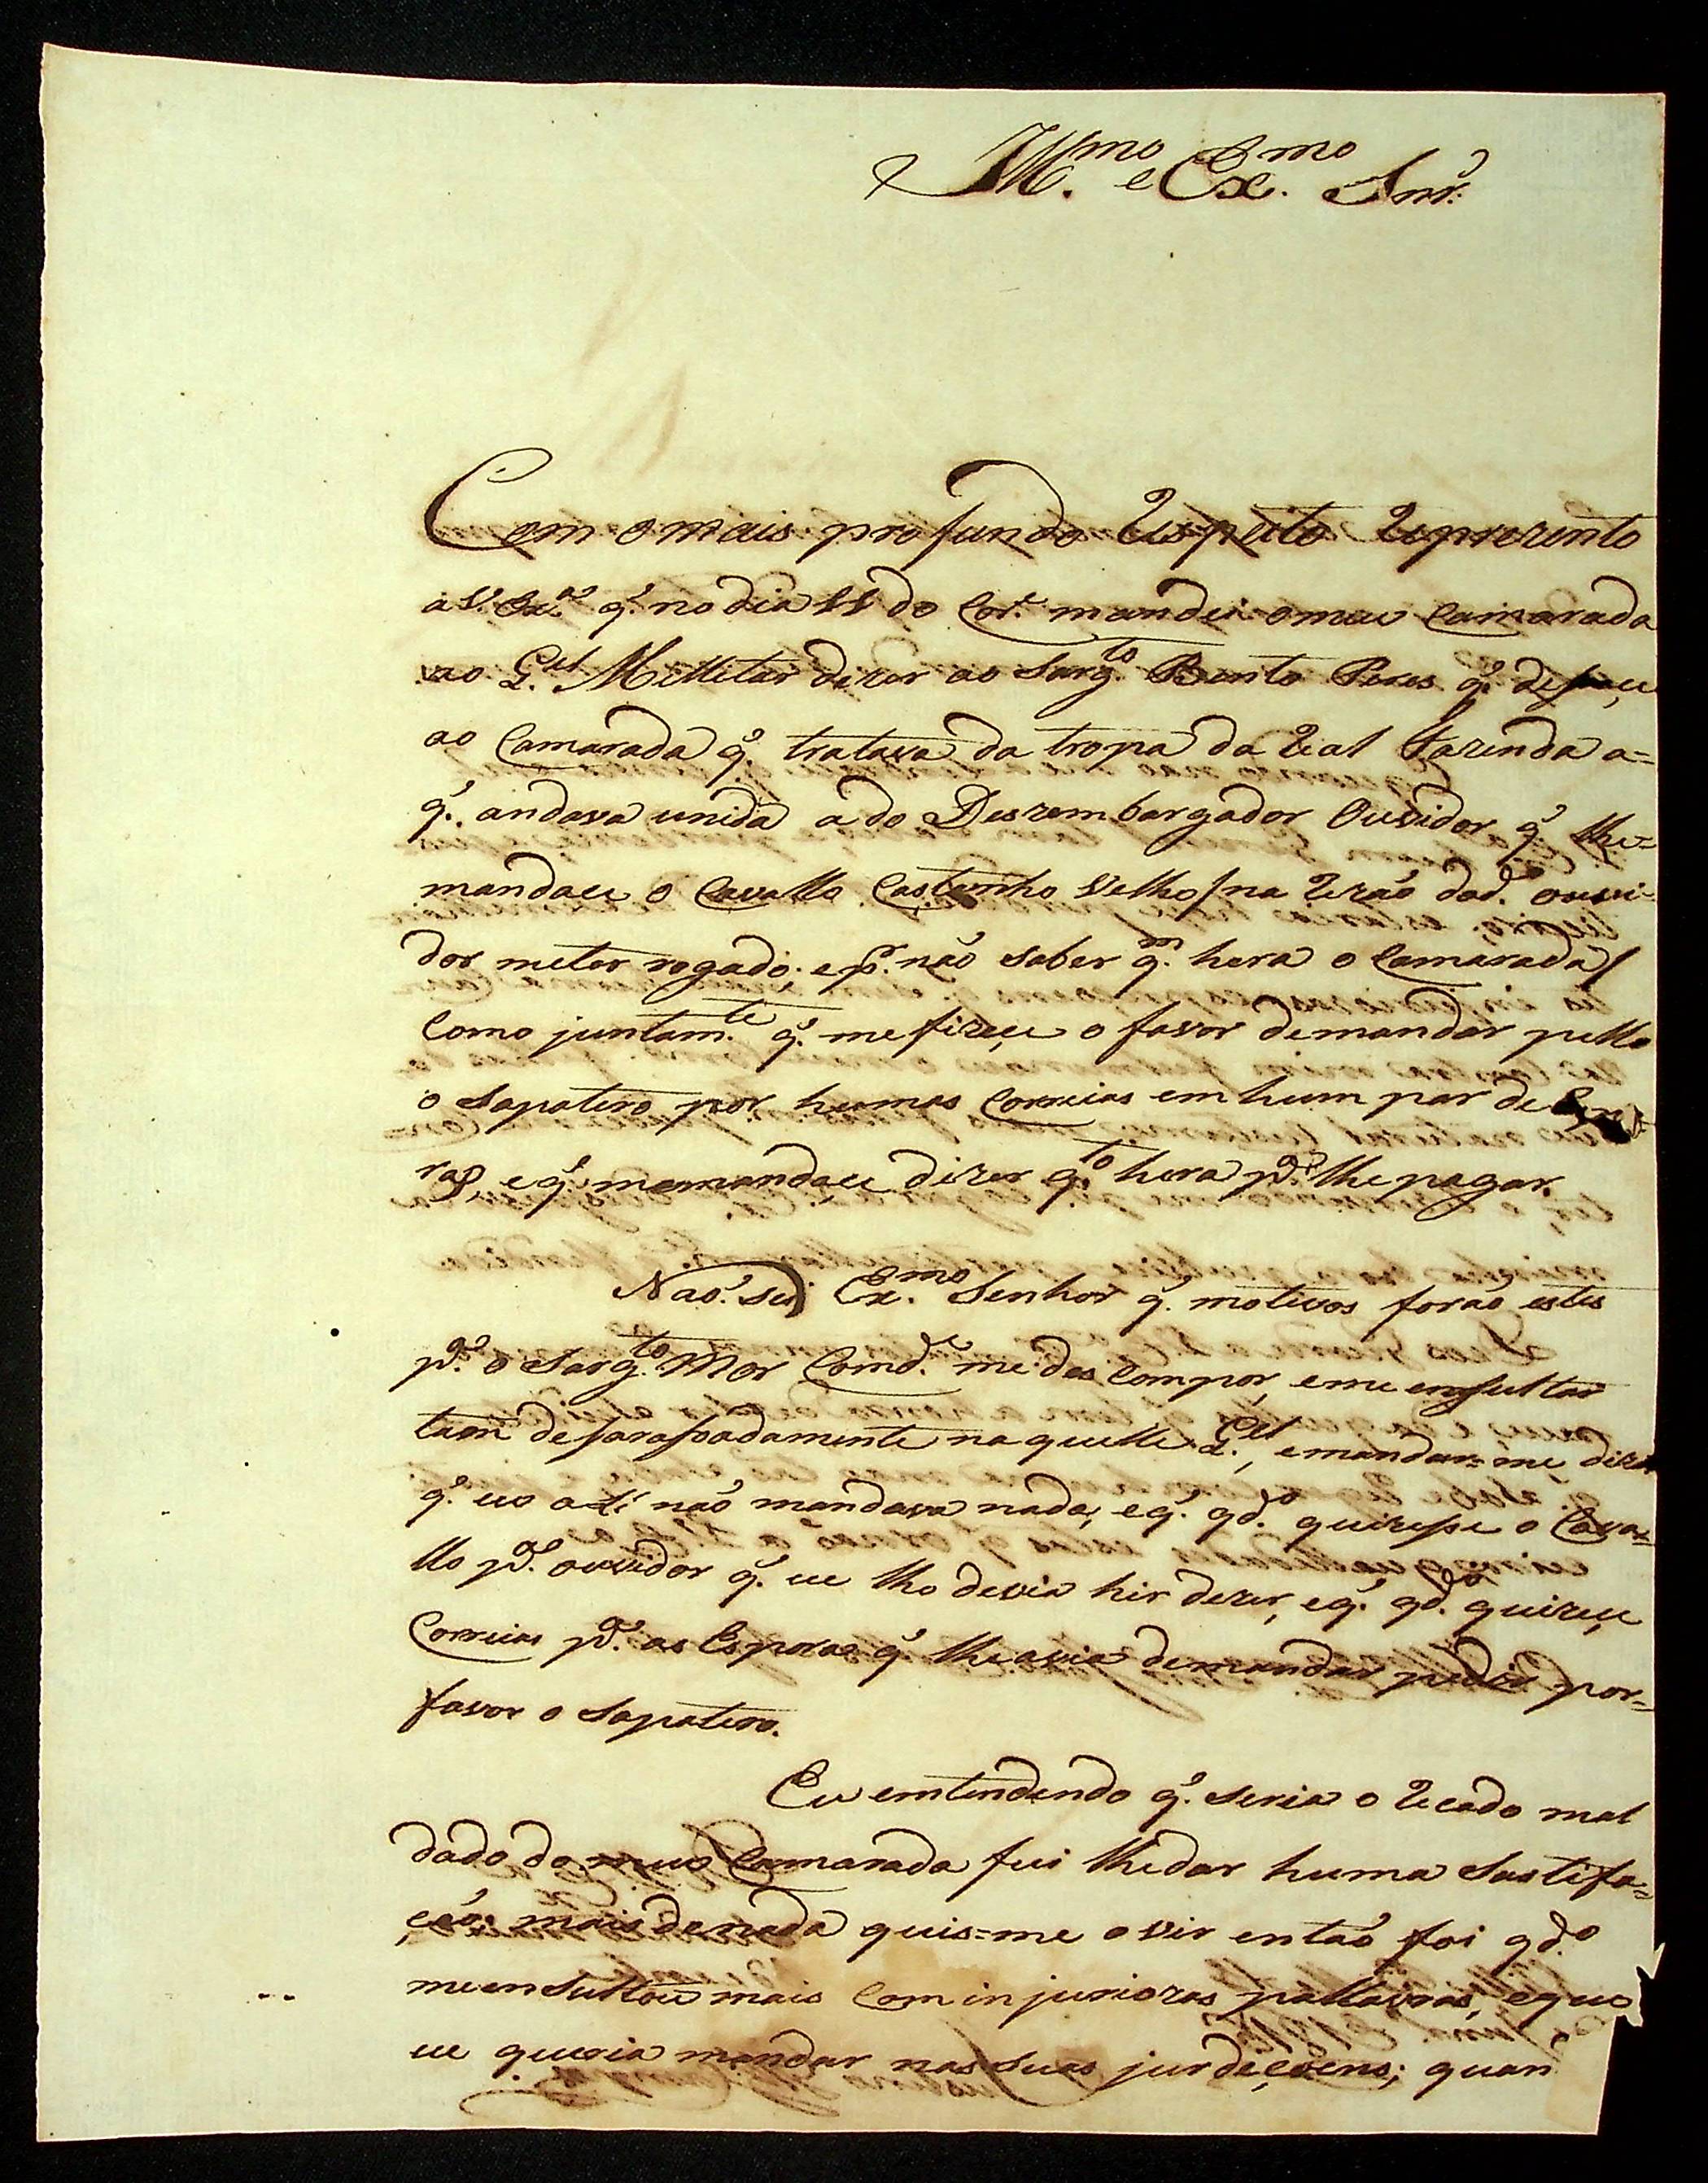 Ill.mo e Ex.mo Snr.
Com o mais profundo Respeito Reprezento
a V. Ex.ª q̃. no dia 11 do Cor.e mandei o meu Camarada
ao Q.el Millitar dizer ao Sarg.to Bento Peres q̃. deçeçe
ao Camarada q̃. tratava da tropa da Real Fazenda a=
q̃. andava unida a do Dezembargador Ouvidor q̃ lhe=
mandaçe o Cavallo Castanho Velho/na Rezão do d.º ouvi-
dor meter rogado; e p.r não saber q.m hera o Camarada/
Como juntam.te q̃. me fizeçe o favor de mandar pello
o Sapateiro por humas Correias em hum par de Espo
ras, e q̃. me mandaçe dizer q.to hera p.ª lhe pagar.
Não sei Ex.mo Senhor q̃. motivos forão estes
p.ª o Sarg.to Mor Comd.e me des Compor, eme ensultar
tam desarasoadamente naquelle Q.el, emandar=me dizer
q̃. eu ali não mandava nada, e q̃. qd.º quizesse o Cava=
llo p.ª ouvidor q̃. eu lho devia hir dezer, e q̃. qd.º quizeçe
Correias p.ª as Esporas q̃. lhe avia demandar pedir por=
favor o Sapateiro.
Eu emtendendo q̃. seria o Recado mal
dado do meu Camarada fui lhe dar huma Sastifa=
ção; mais de nada quis=me ovir então foi qd.º
me ensultou mais Com injuriozas pallavras, e que
eu queria mandar nas suas jurdeçoens; quan